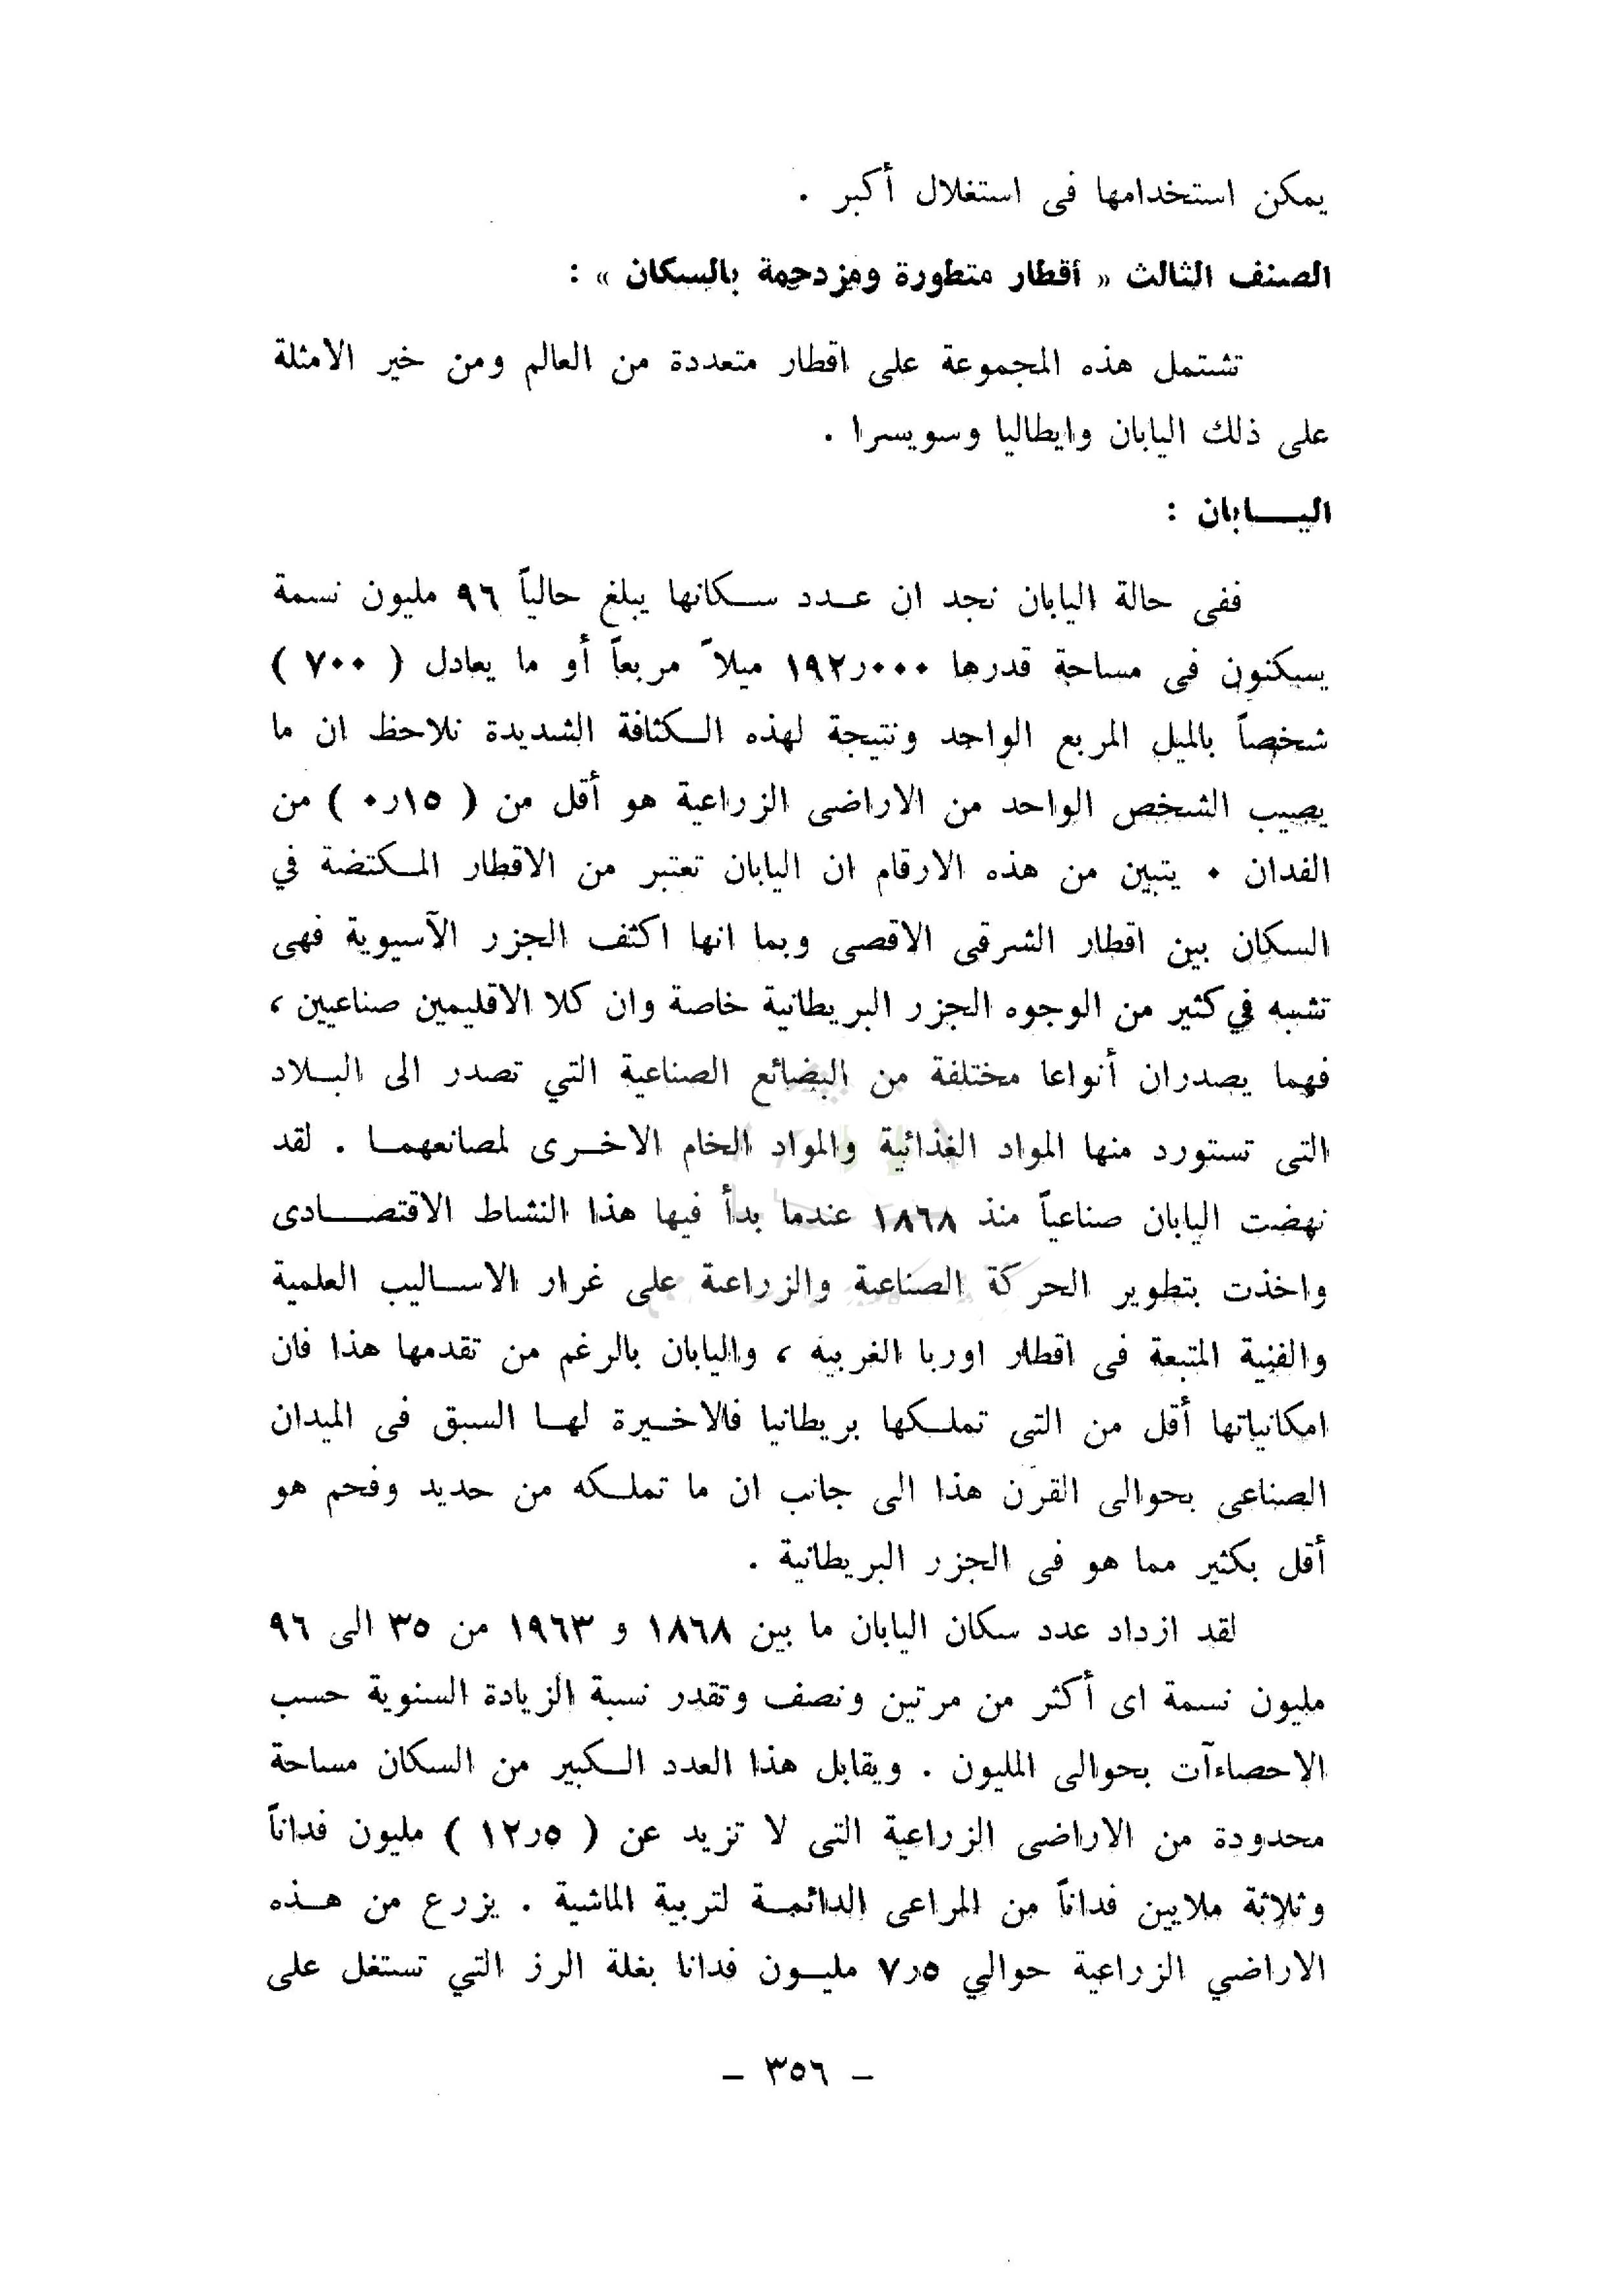 يمكن استخدامها فى استغلال أكبر .
الصنف الثالث « أقطار متطورة ومزدحمة بالسكان » :
تشتمل هذه المجموعة على اقطار متعددة من العالم ومن خير الامثلة
على ذلك اليابان وايطاليا وسويسرا .
اليـــابان :
ففى حالة اليابان نجد ان عــدد ســكانها يبلغ حالياً ٩٦ مليون نسمة
يسكنون فى مساحة قدرها ١٩٢ر٠٠٠ ميلاً مربعاً أو ما يعادل ( ٧٠٠ )
شخصاً بالميل المربع الواحد ونتيجة لهذه الــكثافة الشديدة نلاحظ ان ما
يصيب الشخص الواحد من الاراضى الزراعية هو أقل من ( ١٥ر٠ ) من
الفدان ٠ يتبين من هذه الارقام ان اليابان تعتبر من الاقطار المــكتضة في
السكان بين اقطار الشرقى الاقصى وبما انها اكثف الجزر الآسيوية فهى
تشبه في كثير من الوجوه الجزر البريطانية خاصة وان كلا الاقليمين صناعيين ،
فهما يصدران أنواعا مختلفة من البضائع الصناعية التي تصدر الى البــلاد
التى تستورد منها المواد الغذائية والمواد الخام الاخــرى لمصانعهمــا . لقد
نهضت اليابان صناعياً منذ ١٨٦٨ عندما بدأ فيها هذا النشاط الاقتصــــادى
واخذت بتطوير الحركة الصناعية والزراعية على غرار الاســاليب العلمية
والفنية المتبعة فى اقطار اوربا الغربيه ، واليابان بالرغم من تقدمها هذا فان
امكانياتها أقل من التى تملــكها بريطانيا فالاخــيرة لهــا السبق فى الميدان
الصناعى بحوالى القرن هذا الى جانب ان ما تملــكه من حديد وفحم هو
أقل بكثير مما هو فى الجزر البريطانية .
لقد ازداد عدد سكان اليابان ما بين ١٨٦٨ و ١٩٦٣ من ٣٥ الى ٩٦
مليون نسمة اى أكثر من مرتين ونصف وتقدر نسبة الزيادة السنوية حسب
الاحصاءآت بحوالى المليون . ويقابل هذا العدد الــكبير من السكان مساحة
محدودة من الاراضى الزراعية التى لا تزيد عن ( ٥ر١٢ ) مليون فداناً
وثلاثة ملايين فداناً من المراعى الدائمــة لتربية الماشية . يزرع من هــذه
الاراضي الزراعية حوالي ٥ر٧ مليــون فدانا بغلة الرز التي تستغل على
– ٣٥٦ –